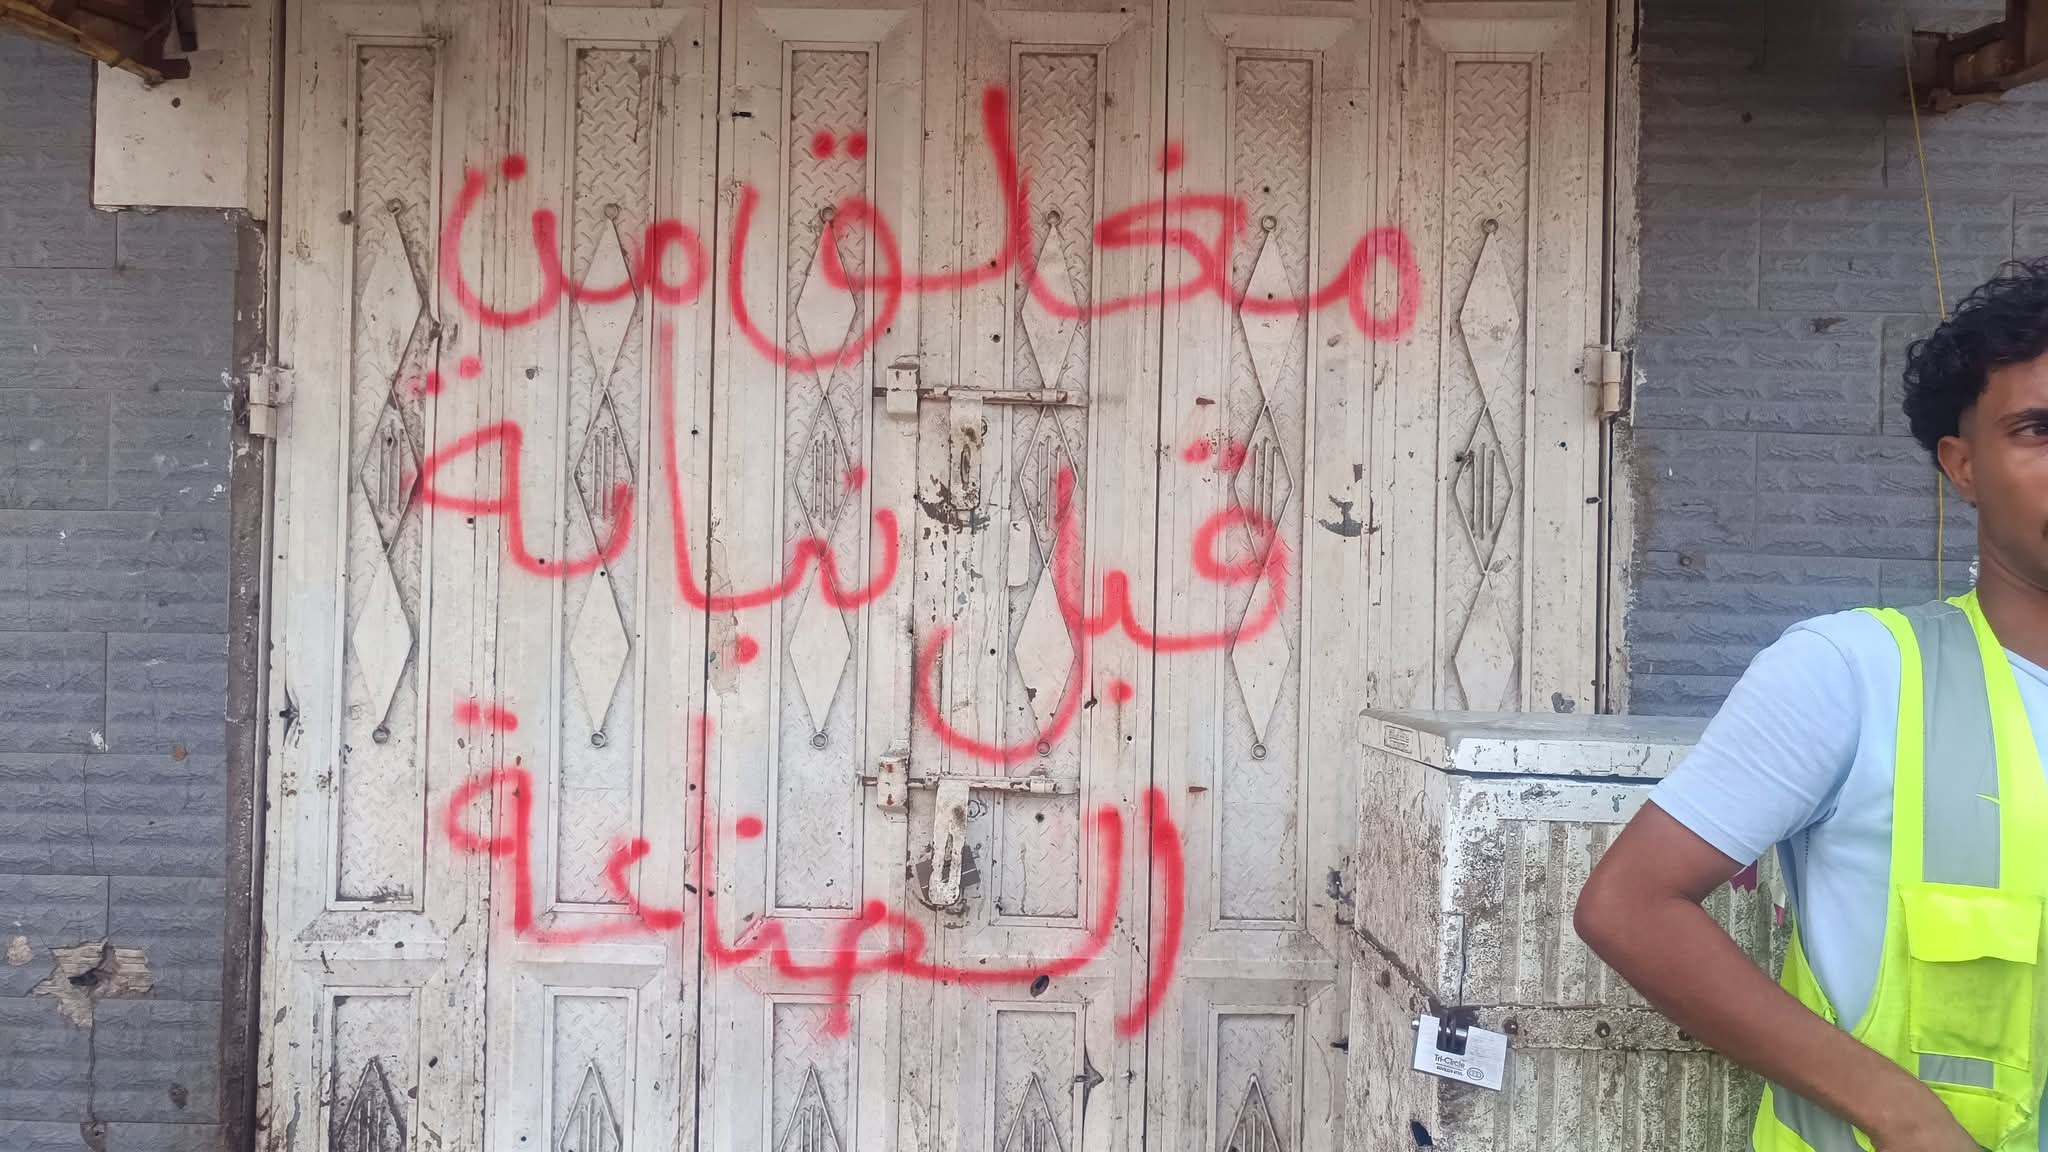 مغلق من
قبل نيابة
الصناعة
Tri-Circle